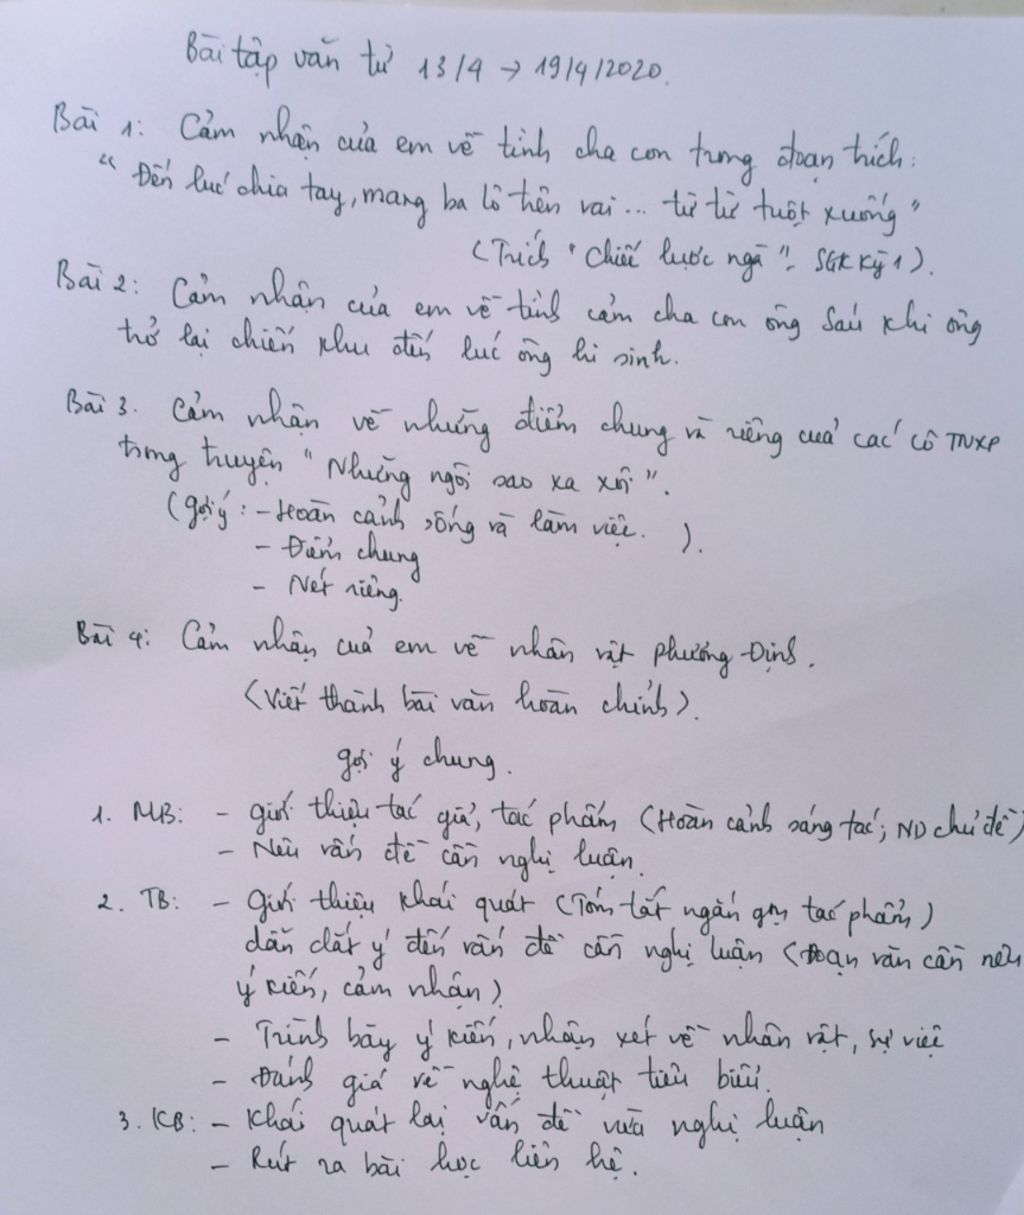 Bài tập văn từ 13/4 → 19/4/2020.
Bài 1: Cảm nhận của em về tình cha con trong đoạn trích:
“ Đến lúc chia tay, mang ba lô trên vai... từ từ tuột xuống”
(Trích “ Chiếc lược ngà ”. SGK Kỳ 1).
Bài 2: Cảm nhận của em về tình cảm cha con ông Sáu khi ông
trở lại chiến khu đến lúc ông hi sinh.
Bài 3. Cảm nhận về những điểm chung và riêng của các cô TNXP
trong truyện “ Những ngôi sao xa xôi ”.
(gợi ý: - Hoàn cảnh sống và làm việc. ).
- Điểm chung
- Nét riêng.
Bài 4: Cảm nhận của em về nhân vật Phương Định.
(Viết thành bài văn hoàn chỉnh).
gợi ý chung.
1. MB: - giới thiệu tác giả, tác phẩm (Hoàn cảnh sáng tác; ND chủ đề)
- Nêu vấn đề cần nghị luận.
2. TB: - giới thiệu khái quát (Tóm tắt ngắn gọn tác phẩm)
dẫn dắt ý đến vấn đề cần nghị luận (Đoạn văn cần nêu
ý kiến, cảm nhận)
- Trình bày ý kiến, nhận xét về nhân vật, sự việc
- Đánh giá về nghệ thuật tiêu biểu.
3. KB: - Khái quát lại vấn đề vừa nghị luận
- Rút ra bài học liên hệ.